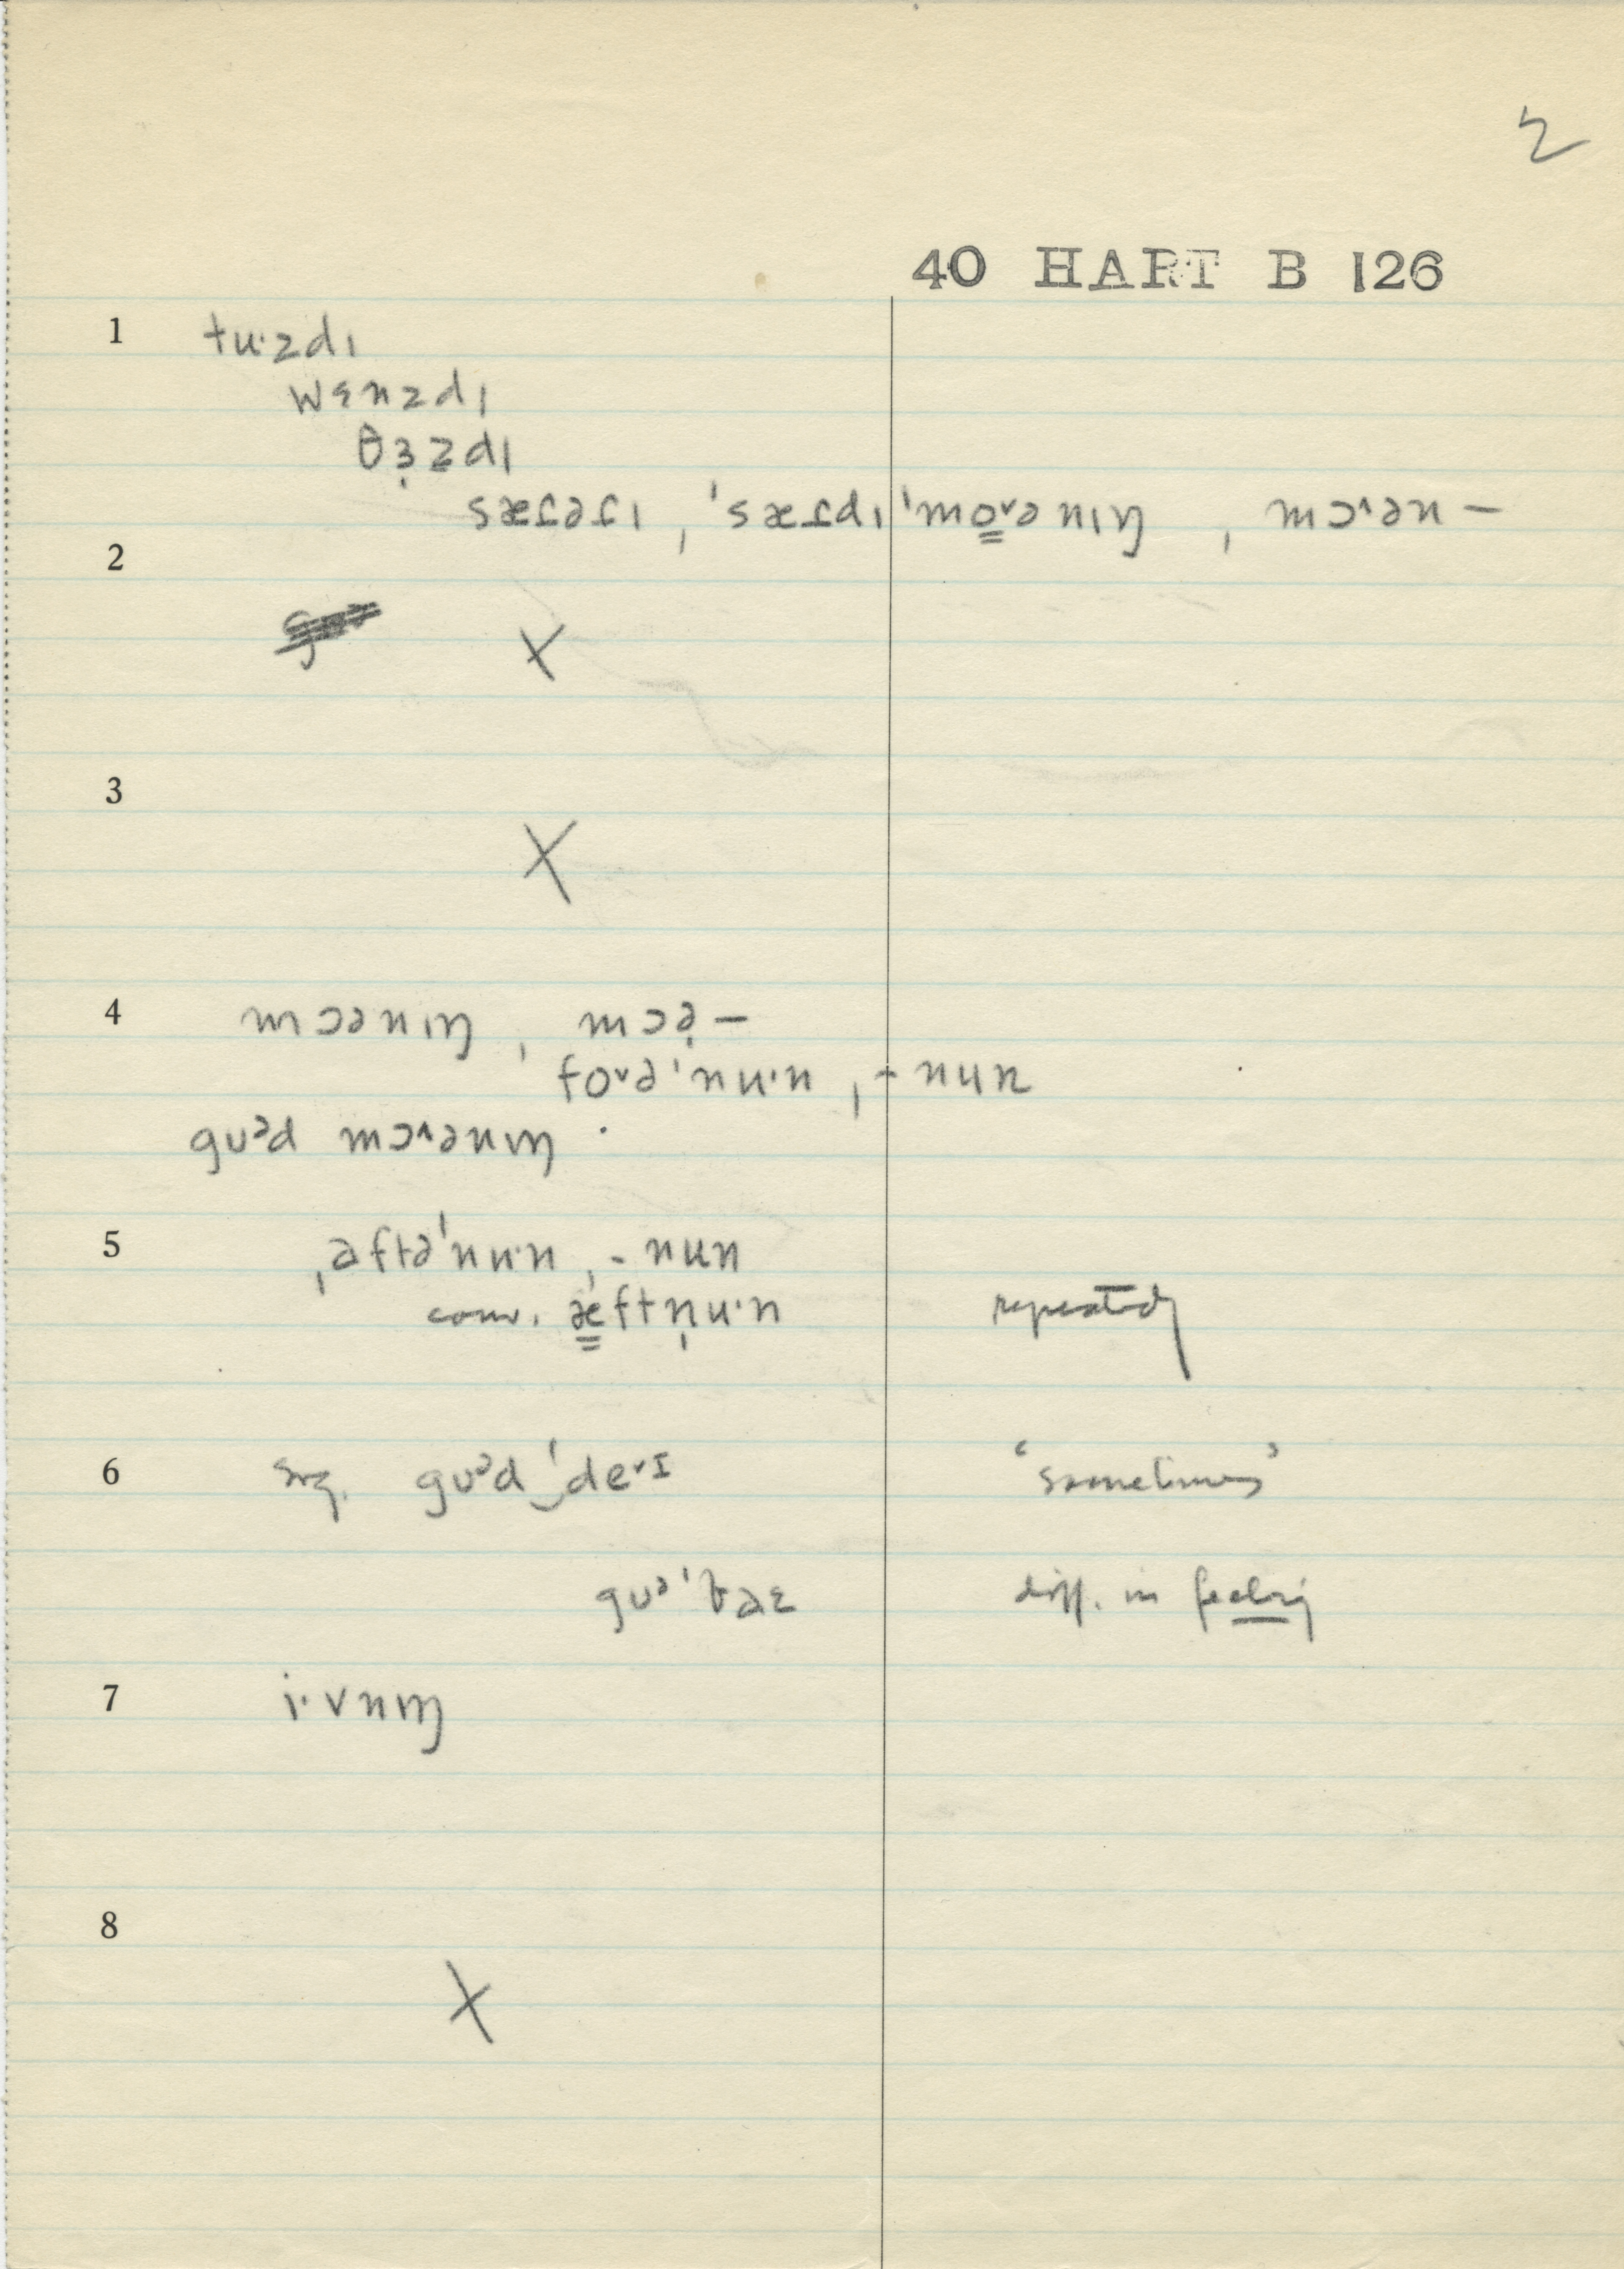 2
40 HART B 126
1 tu·zdɪ
wɛnzdɪ
θɜ̣zdɪ
sæɾəɾɪ, ˈsæɾdɪ ˈmo̳˅ənɪŋ, mɔ˄ən—
2 X
3 X
4 mɔənɪŋ, mɔə̣—
fo˅əˈnu·n, -nun
gᴜᵊd mɔ˄ənɪŋ
5 ˌaftəˈnu·n, -nun
conv. æ̳ftṇu·n repeatedly
6 sug. gᴜᵊdˈ‿de˅ɪ ‘sometimes’
diff. in feeling
7 i·vnɪŋ
8 X